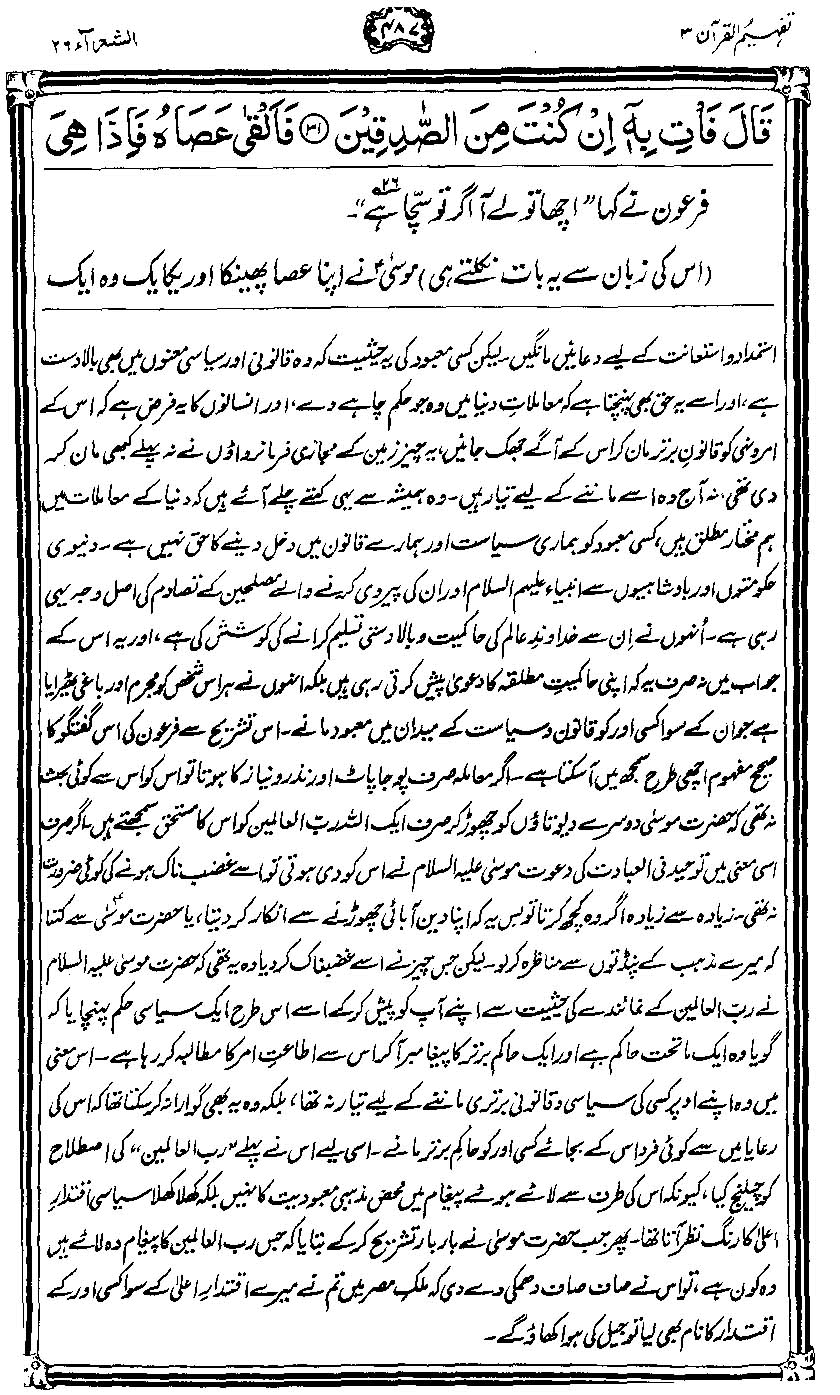 تفہیم القرآن ۳
۴۸۷
الشعرآء ۲۶
قَالَ فَاْتِ بِهٖٓ اِنْ كُنْتَ مِنَ الصّٰدِقِيْنَ ۝۳۱ فَاَلْقٰى عَصَاهُ فَاِذَا هِيَ
فرعون نے کہا ”اچھا تو لے آ اگر تو سچّا ہے۲۶“۔
(اس کی زبان سے یہ بات نکلتے ہی) موسیٰؑ نے اپنا عصا پھینکا اور یکایک وہ ایک
استمداد و استعانت کے لیے دعائیں مانگیں۔ لیکن کسی معبود کی یہ حیثیت کہ وہ قانونی اور سیاسی معنوں میں بھی بالادست
ہے، اور اسے یہ حق بھی پہنچتا ہے کہ معاملاتِ دنیا میں وہ جو حکم چاہے دے، اور انسانوں کا یہ فرض ہے کہ اس کے
امر و نہی کو قانونِ برتر مان کر اس کے آگے جھک جائیں، یہ چیز زمین کے مجازی فرمانرواؤں نے نہ پہلے کبھی مان کر
دی تھی، نہ آج وہ اسے ماننے کے لیے تیار ہیں۔ وہ ہمیشہ سے یہی کہتے چلے آئے ہیں کہ دنیا کے معاملات میں
ہم مختارِ مطلق ہیں، کسی معبود کو ہماری سیاست اور ہمارے قانون میں دخل دینے کا حق نہیں ہے۔ دنیوی
حکومتوں اور بادشاہیوں سے انبیاء علیہم السلام اور ان کی پیروی کرنے والے مصلحین کے تصادم کی اصل وجہ یہی
رہی ہے۔ اُنہوں نے اِن سے خداوندِ عالم کی حاکمیت و بالادستی تسلیم کرانے کی کوشش کی ہے، اور یہ اس کے
جواب میں نہ صرف یہ کہ اپنی حاکمیتِ مطلقہ کا دعویٰ پیش کرتی رہی ہیں بلکہ انہوں نے ہر اس شخص کو مجرم اور باغی ٹھیرایا
ہے جو ان کے سوا کسی اور کو قانون و سیاست کے میدان میں معبود مانے۔ اس تشریح سے فرعون کی اس گفتگو کا
صحیح مفہوم اچھی طرح سمجھ میں آسکتا ہے۔ اگر معاملہ صرف پوجا پاٹ اور نذر و نیاز کا ہوتا تو اس کو اس سے کوئی بحث
نہ تھی کہ حضرت موسیٰ دوسرے دیوتاؤں کو چھوڑ کر صرف ایک اللہ ربّ العالمین کو اس کا مستحق سمجھتے ہیں۔ اگر صرف
اسی معنی میں توحید فی العبادت کی دعوت موسیٰ علیہ السلام نے اس کو دی ہوتی تو اسے غضب ناک ہونے کی کوئی ضرورت
نہ تھی۔ زیادہ سے زیادہ اگر وہ کچھ کرتا تو بس یہ کہ اپنا دینِ آبائی چھوڑنے سے انکار کر دیتا، یا حضرت موسیٰؑ سے کہتا
کہ میرے مذہب کے پنڈتوں سے مناظرہ کر لو۔ لیکن جس چیز نے اسے غضبناک کر دیا وہ یہ تھی کہ حضرت موسیٰ علیہ السلام
نے ربّ العالمین کے نمائندے کی حیثیت سے اپنے آپ کو پیش کر کے اسے اس طرح ایک سیاسی حکم پہنچایا کہ
گویا وہ ایک ماتحت حاکم ہے اور ایک حاکم برتر کا پیغامبر آ کر اس سے اطاعتِ امر کا مطالبہ کر رہا ہے۔ اس معنی
میں وہ اپنے اوپر کسی کی سیاسی و قانونی برتری ماننے کے لیے تیار نہ تھا، بلکہ وہ یہ بھی گوارا نہ کر سکتا تھا کہ اس کی
رعایا میں سے کوئی فرد اس کے بجائے کسی اور کو حاکم برتر مانے۔ اسی لیے اس نے پہلے ”رب العالمین“ کی اصطلاح
کو چیلنج کیا، کیونکہ اس کی طرف سے لائے ہوئے پیغام میں محض مذہبی معبودیت کا نہیں بلکہ کھلا کھلا سیاسی اقتدارِ
اعلیٰ کا رنگ نظر آتا تھا۔ پھر جب حضرت موسیٰ نے بار بار تشریح کر کے بتایا کہ جس رب العالمین کا پیغام وہ لائے ہیں
وہ کون ہے، تو اس نے صاف صاف دھمکی دے دی کہ ملک مصر میں تم نے میرے اقتدارِ اعلیٰ کے سوا کسی اور کے
اقتدار کا نام بھی لیا تو جیل کی ہوا کھاؤ گے۔